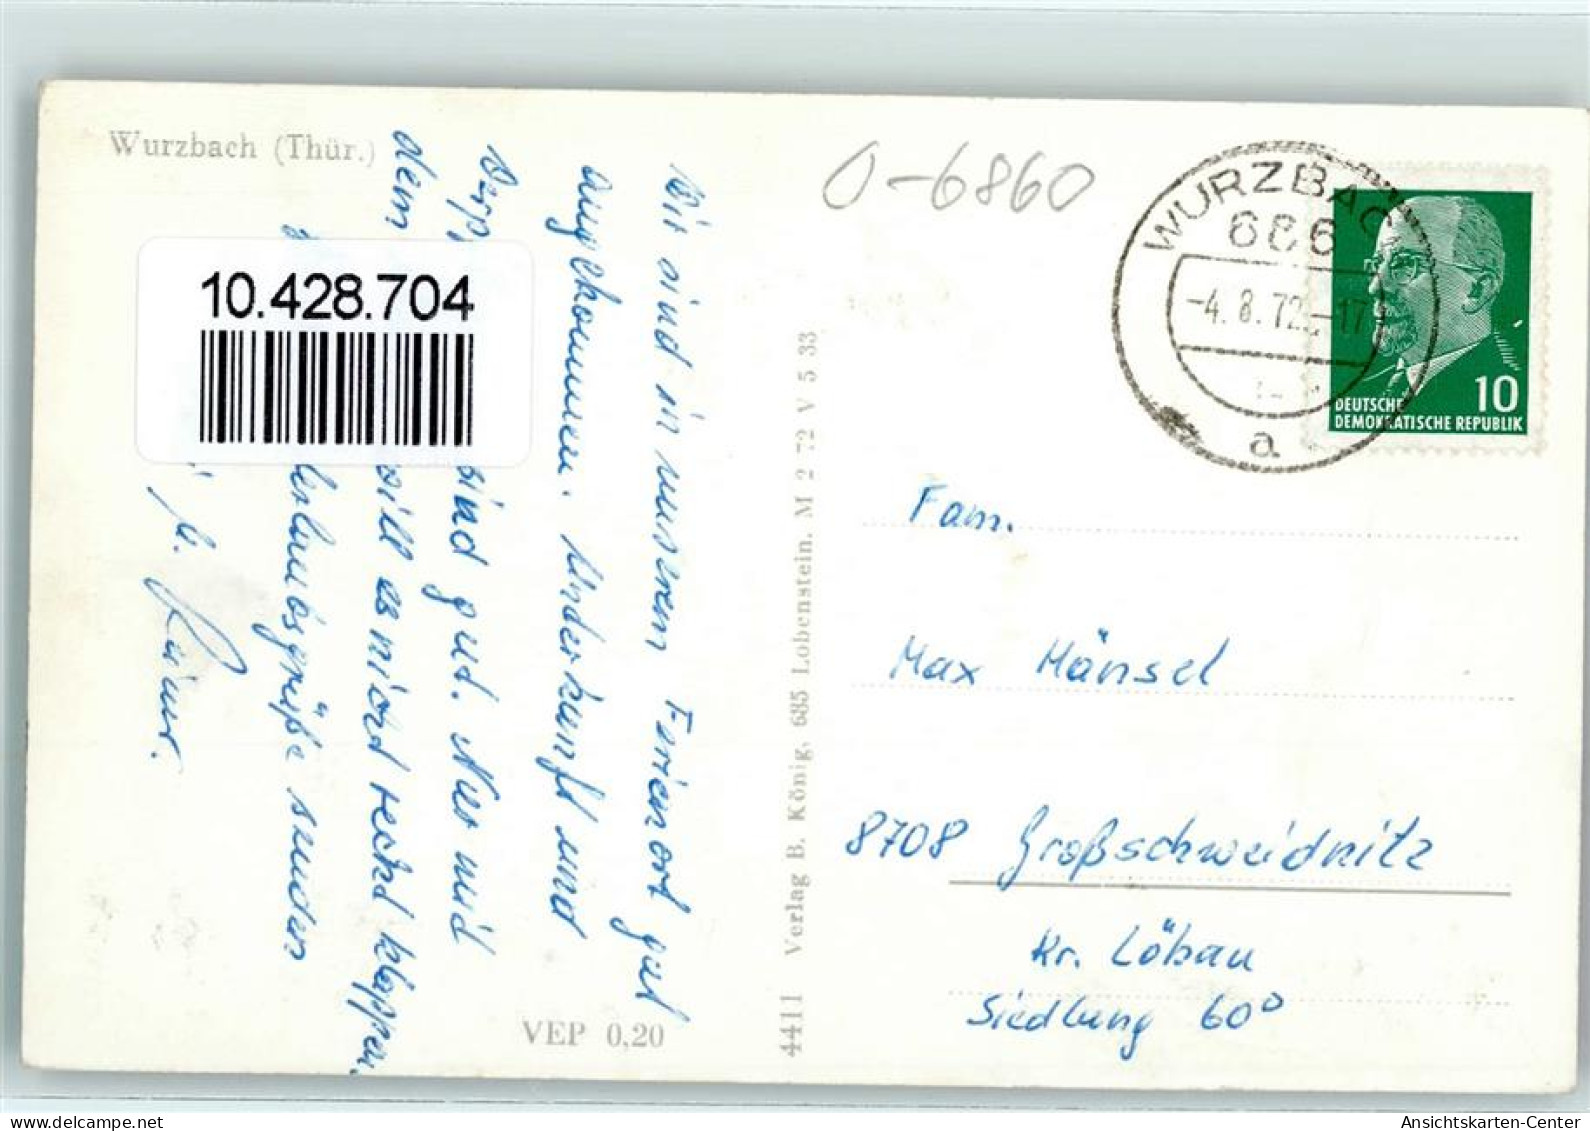 Wurzbach (Thür.)
Wir sind in unserem Ferienort gut
angekommen. Unterkunft und
Verp sind gut. Nur mit
dem will es nicht recht klappen.
Urlaubsgrüße senden
u.
10.428.704
VEP 0,20
4411 Verlag B. König, 685 Lobenstein. M 2 72 V 5 33
O-6860
WURZBAC
686
-4.8.72.-17
a
10
DEUTSCHE
DEMOKRATISCHE REPUBLIK
Fam.
Max Hänsel
8708 Großschweidnitz
Kr. Löbau
Siedlung 60
Ansichtskarten-Center